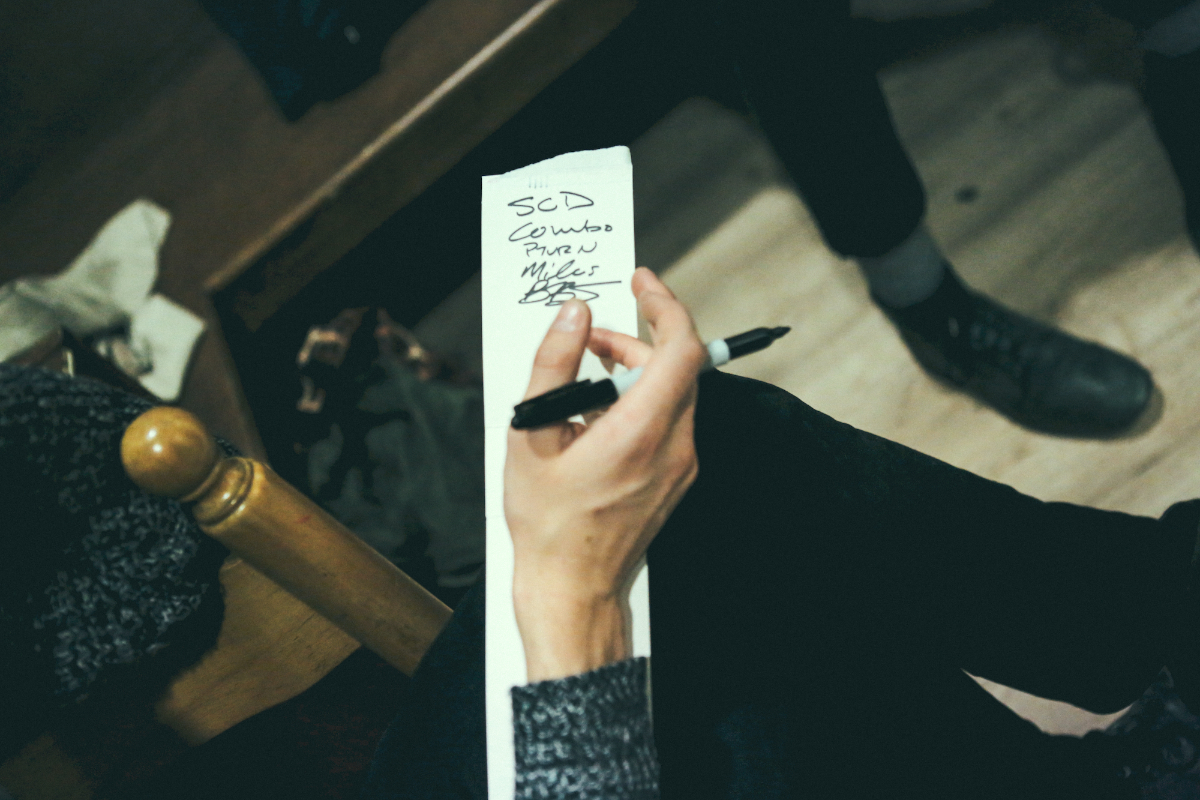 SCD
Combo
PTURN
Miles